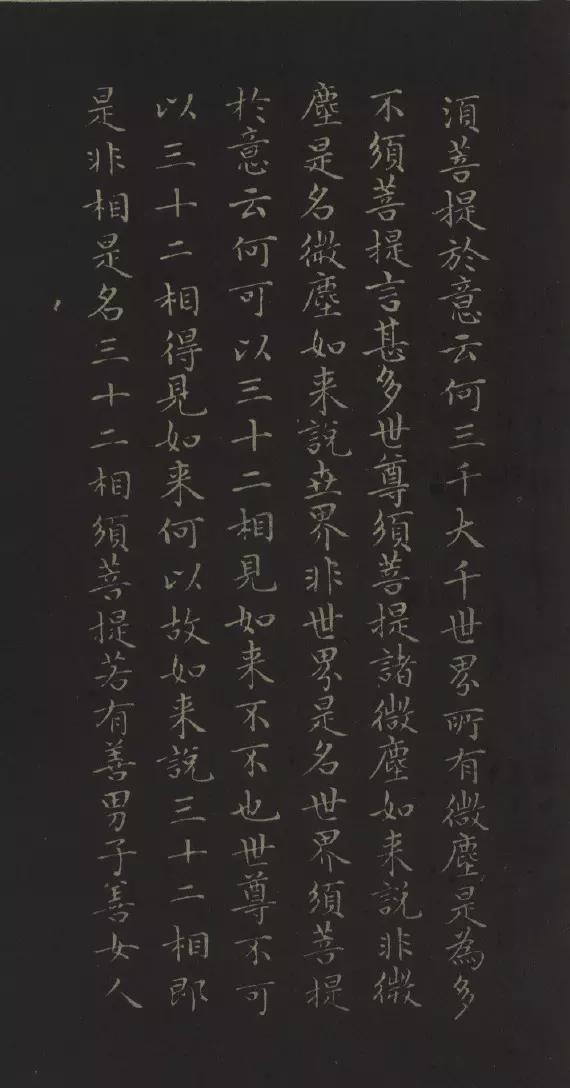 須菩提於意云何三千大千世界所有微塵是為多
不須菩提言甚多世尊須菩提諸微塵如来說非微
塵是名微塵如来說世界非世界是名世界須菩提
於意云何可以三十二相見如来不不也世尊不可
以三十二相得見如来何以故如来說三十二相即
是非相是名三十二相須菩提若有善男子善女人